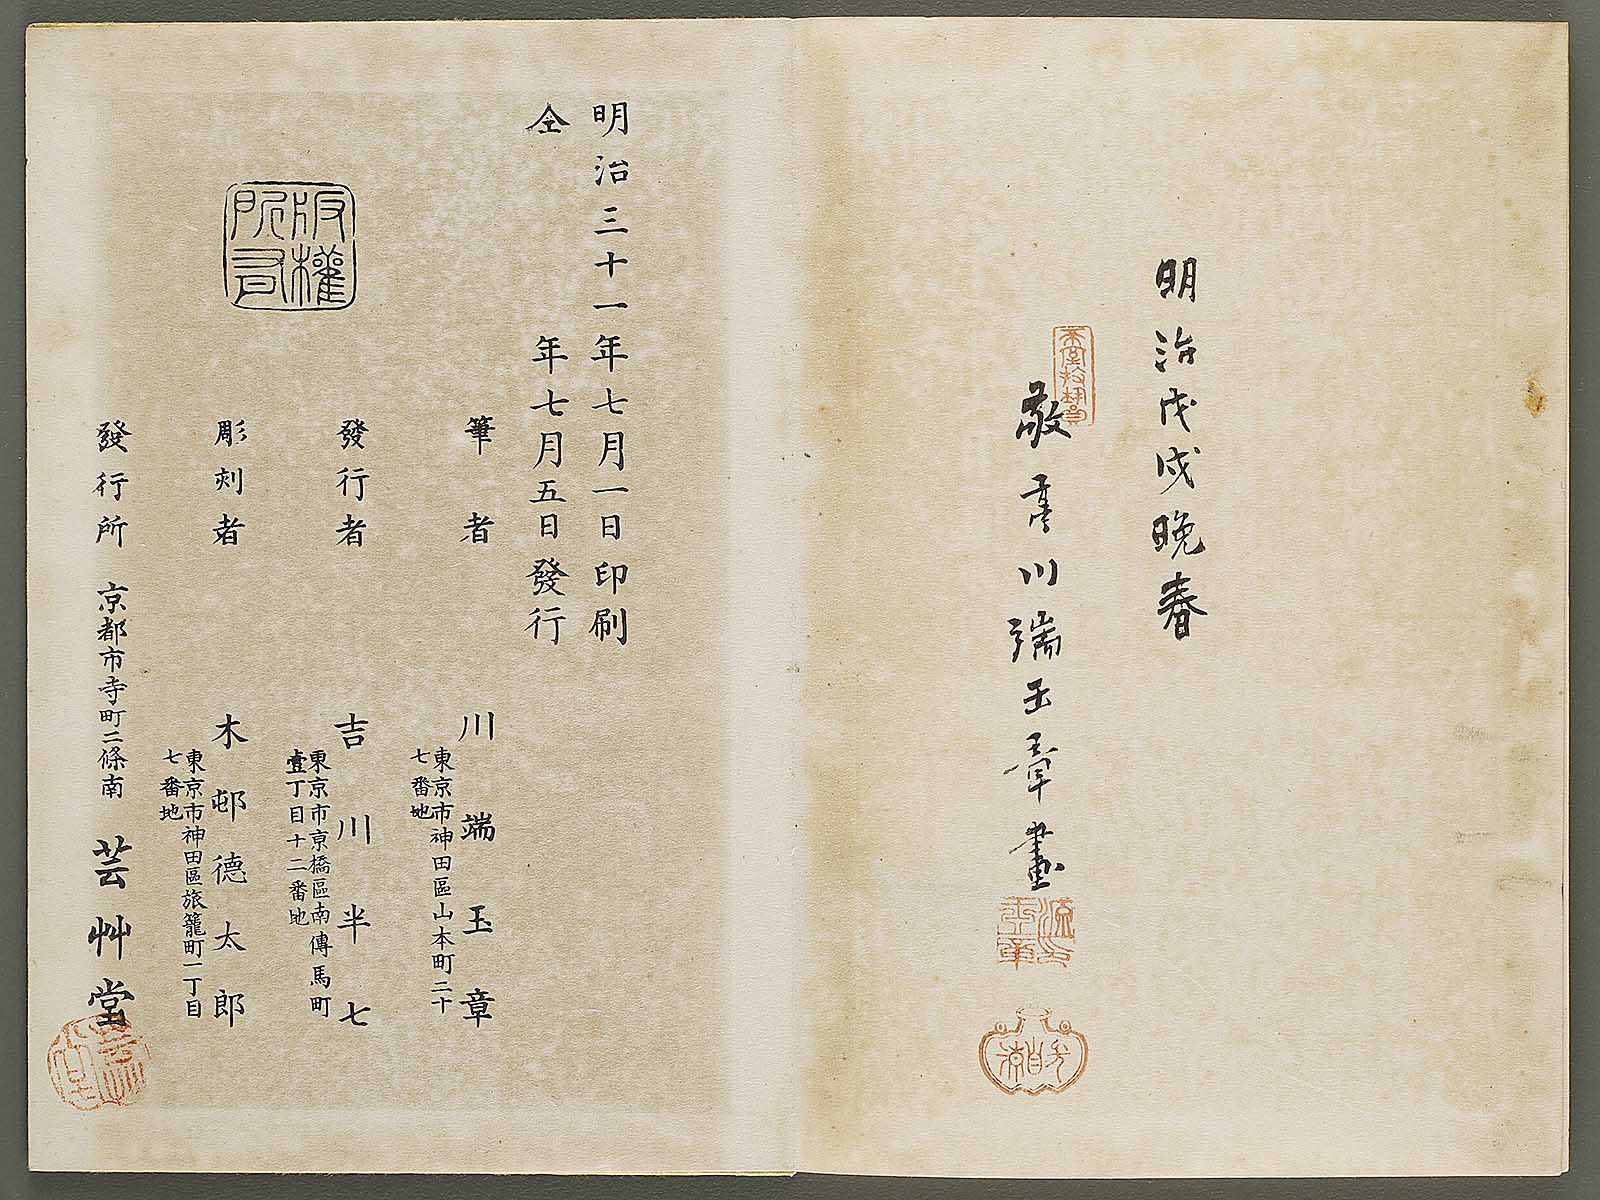 明治戊戌晩春
敬亭川端玉章畫
明治三十一年七月一日印刷
仝年七月五日發行
筆者 川端玉章
東京市神田區山本町二十
七番地
發行者 吉川半七
東京市京橋區南傳馬町
壹丁目十二番地
版權所有
彫刻者 木邨徳太郎
東京市神田區旅籠町一丁目
七番地
發行所 京都市寺町二條南 芸艸堂
芸艸堂